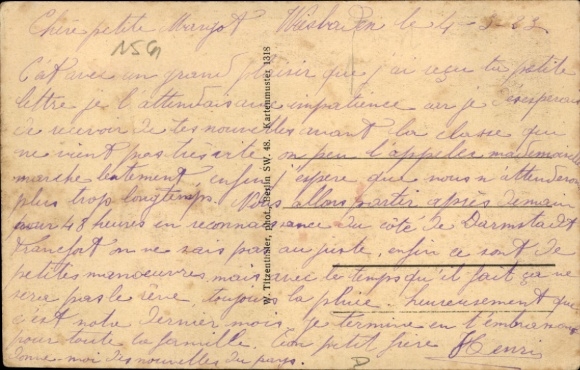 Chère petite Margot Wiesbaden le 4-3-23
NSG
C'est avec un grand plaisir que j'ai reçu ta petite
lettre je l'attendais avec impatience car je désespérais
de recevoir de tes nouvelles avant la classe qui
ne vient pas très vite on peu l'appeler mademoiselle
marche lentement, enfin j'espère que nous n'attenderons
plus trop longtemps. Nous allons partir après demain
pour 48 heures en reconnaissance du côté de Darmstadt
Francfort on ne sais pas au juste, enfin ce sont de
petites manœuvres, mais avec le temps qu'il fait ça ne
sera pas le rêve, toujours la pluie. heureusement que
c'est notre dernier mois. je termine en t'embrassant
pour toute la famille. Ton petit frère Henri
donne-moi des nouvelles du pays.
D
W. Titzenthaler, phot., Berlin SW. 48. Kartenmuster 1318